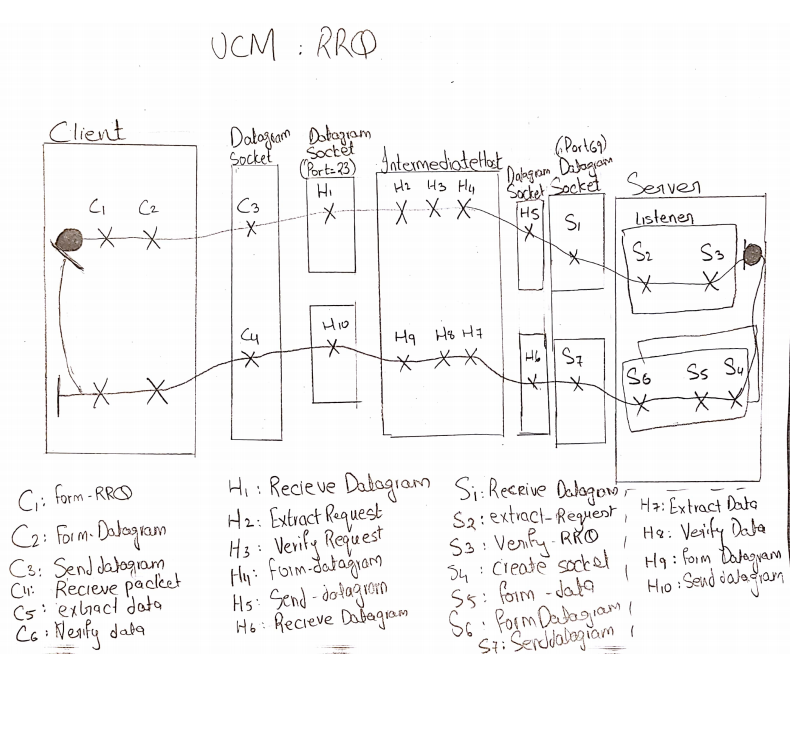 UCM : RRQ
Client
Datagram
Socket
Datagram
Socket
(Port=23)
IntermediateHost
Datagram
Socket
(Port69)
Datagram
Socket
Server
C1
C2
C3
H1
H2
H3
H4
H5
S1
Listener
S2
S3
C4
H10
H9
H8
H7
H6
S7
S6
S5
S4
C1: form-RRQ
C2: Form-Datagram
C3: Send datagram
C4: Recieve packet
C5: extract data
C6: Verify data
H1: Recieve Datagram
H2: Extract Request
H3: Verify Request
H4: form-datagram
H5: Send-datagram
H6: Recieve Datagram
S1: Receive Datagram
S2: extract-Request
S3: Verify-RRQ
S4: Create socket
S5: form-data
S6: Form Datagram
S7: Send datagram
H7: Extract Data
H8: Verify Data
H9: Form Datagram
H10: Send datagram